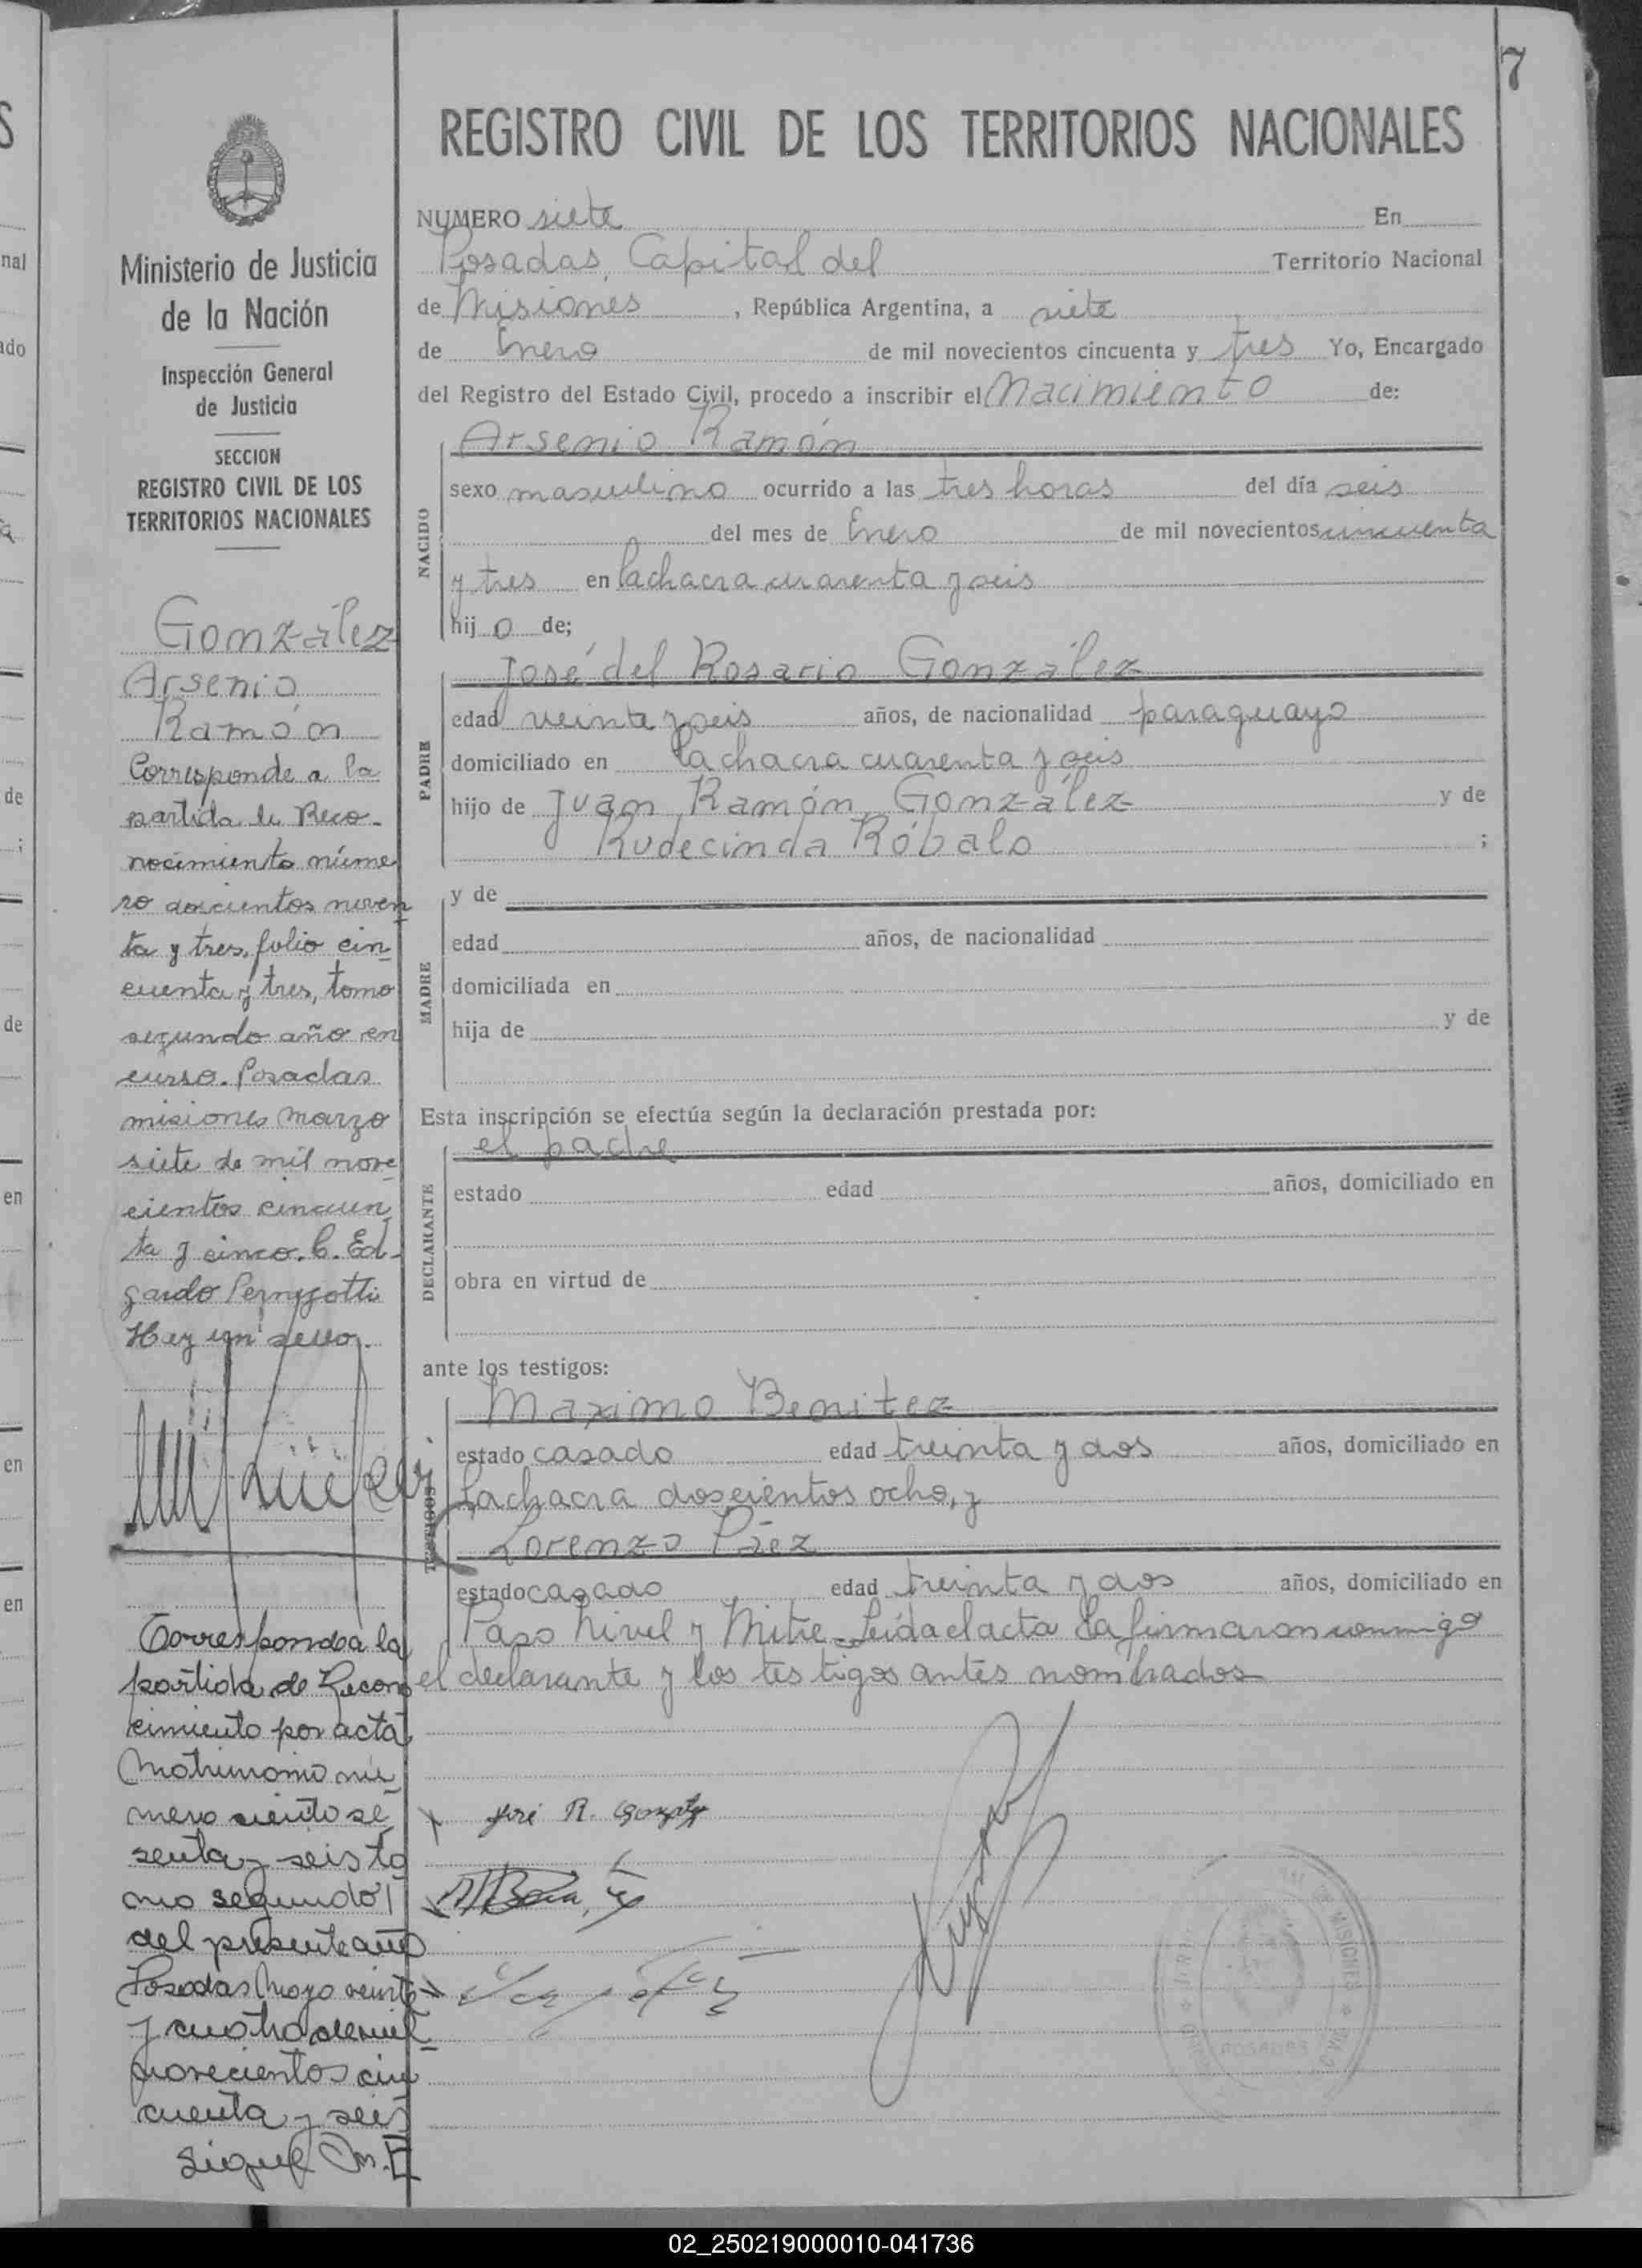 7
REGISTRO CIVIL DE LOS TERRITORIOS NACIONALES
Ministerio de Justicia
de la Nación
Inspección General
de Justicia
SECCION
REGISTRO CIVIL DE LOS
TERRITORIOS NACIONALES
González
Arsenio
Ramón
Corresponde a la
partida de Reco-
nocimiento núme
ro doscientos noven
ta y tres, folio cin
cuenta y tres, tomo
segundo año en
curso. Posadas
misiones Marzo
siete de mil nove
cientos cincuen
ta y cinco. C. Ed-
gardo Pernigotti
Hay un sello.
Corresponde a la
partida de Recono
cimiento por acta
Matrimonio nú
mero ciento se
senta y seis to
mo segundo
del presente año
Posadas Mayo veinte
y cuatro de mil
novecientos cin
cuenta y seis
NUMERO siete En
Posadas, Capital del Territorio Nacional
de Misiones, República Argentina, a siete
de Enero de mil novecientos cincuenta y tres Yo, Encargado
del Registro del Estado Civil, procedo a inscribir el Nacimiento de:
NACIDO
Arsenio Ramón
sexo masculino ocurrido a las tres horas del día seis
del mes de Enero de mil novecientos cincuenta
y tres en la chacra cuarenta y seis
hijo de;
PADRE
José del Rosario González
edad veinte y seis años, de nacionalidad paraguayo
domiciliado en la chacra cuarenta y seis
hijo de Juan Ramón González y de
Rudecinda Róbalo ;
MADRE
y de
edad años, de nacionalidad
domiciliada en
hija de y de
Esta inscripción se efectúa según la declaración prestada por:
DECLARANTE
el padre
estado edad años, domiciliado en
obra en virtud de
ante los testigos:
TESTIGOS
Maximo Benitez
estado casado edad treinta y dos años, domiciliado en
la chacra doscientos ocho, y
Lorenzo Páez
estado casado edad treinta y dos años, domiciliado en
Paso Nivel y Mitre. Leída el acta la firmaron conmigo
el declarante y los testigos antes nombrados
José R. Gonzalez
DE MISIONES
CIVIL
POSADAS
nal
ado
de
de
en
en
en
02_250219000010-041736